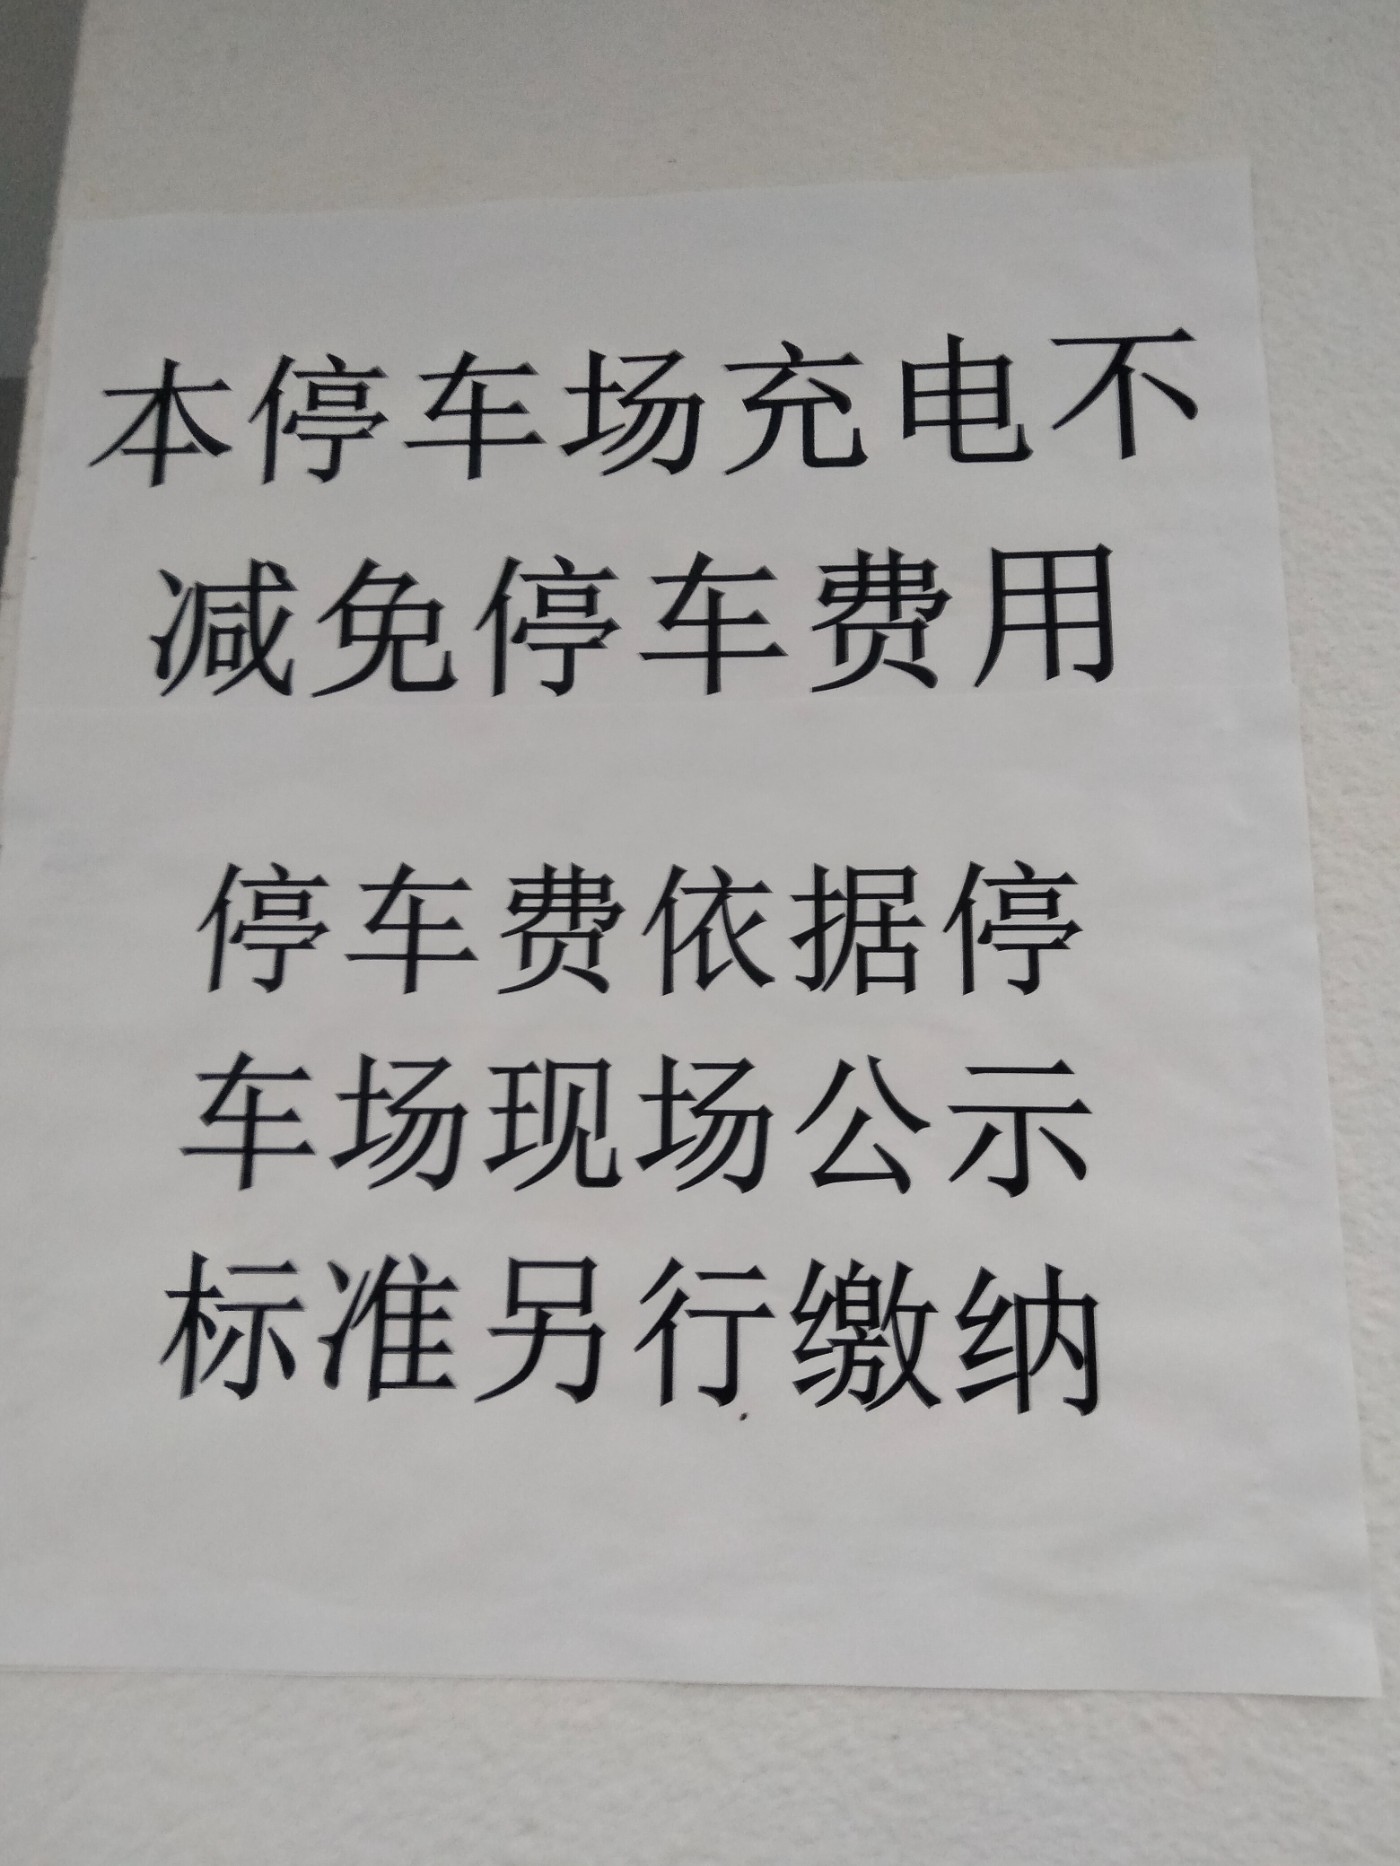 本停车场充电不
减免停车费用
停车费依据停
车场现场公示
标准另行缴纳